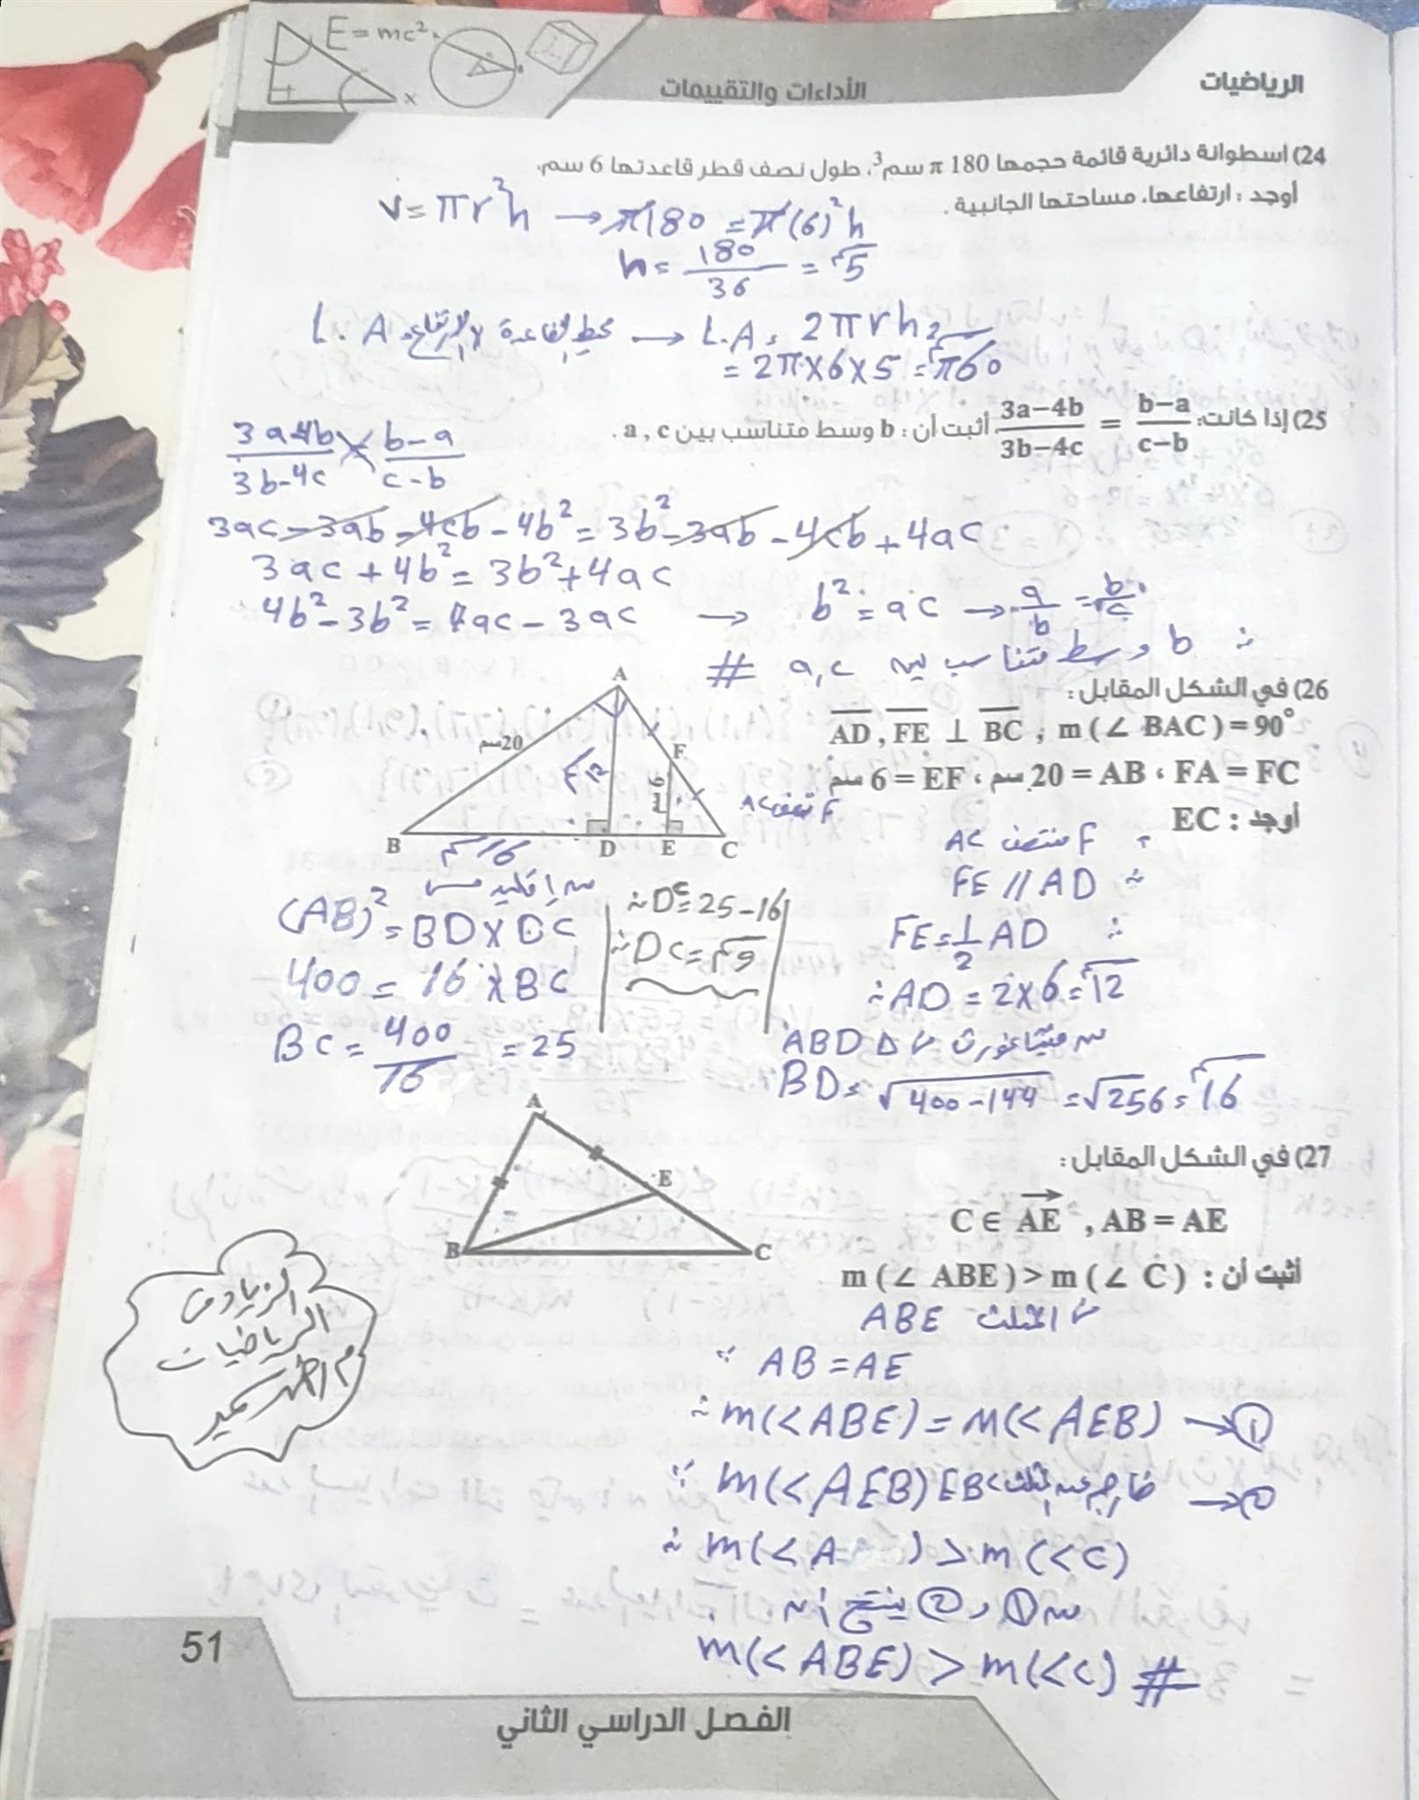 E=mc²
x
الأداءات والتقييمات
الرياضيات
24) اسطوانة دائرية قائمة حجمها 180 π سم³، طول نصف قطر قاعدتها 6 سم.
أوجد : ارتفاعها، مساحتها الجانبية .
v = πr²h → π180 = π(6)²h
h = 180/36 = 5سم
L.A = محيط القاعدة × الارتفاع → L.A = 2πrh
= 2π×6×5 = π60
25) إذا كانت: (3a–4b)/(3b–4c) = (b–a)/(c–b) أثبت أن : b وسط متناسب بين a , c .
3a-4b/3b-4c × b-a/c-b
3ac - 3ab - 4cb - 4b² = 3b² - 3ab - 4cb + 4ac
3ac + 4b² = 3b² + 4ac
4b² - 3b² = 4ac - 3ac → b² = ac → a/b = b/c
∴ b وسط متناسب بين a,c #
26) في الشكل المقابل :
AD , FE ⊥ BC , m (∠ BAC) = 90°
FA = FC ، AB = 20 سم ، EF = 6 سم
أوجد : EC
A
20سم
F
12
6سم
B
D
E
C
16
F منتصف AC
∵ F منتصف AC
∴ FE // AD
∴ FE = 1/2 AD
∴ AD = 2×6 = 12
من فيثاغورث Δ ABD
BD = √400-144 = √256 = 16
من إقليدس
(AB)² = BD × BC
400 = 16 × BC
BC = 400/16 = 25
∴ DC = 25-16
∴ DC = 9
27) في الشكل المقابل :
C ∈ AE , AB = AE
أثبت أن : m (∠ ABE) > m (∠ C)
A
E
B
C
المثلث ABE
∵ AB = AE
∴ m(<ABE) = m(<AEB) → ①
∵ m(<AEB) خارجة عن المثلث EBC → ②
∴ m(<A ) > m(<C)
من ① و ② ينتج أن
m(<ABE) > m(<C) #
الرياضيات
51
الفصل الدراسي الثاني